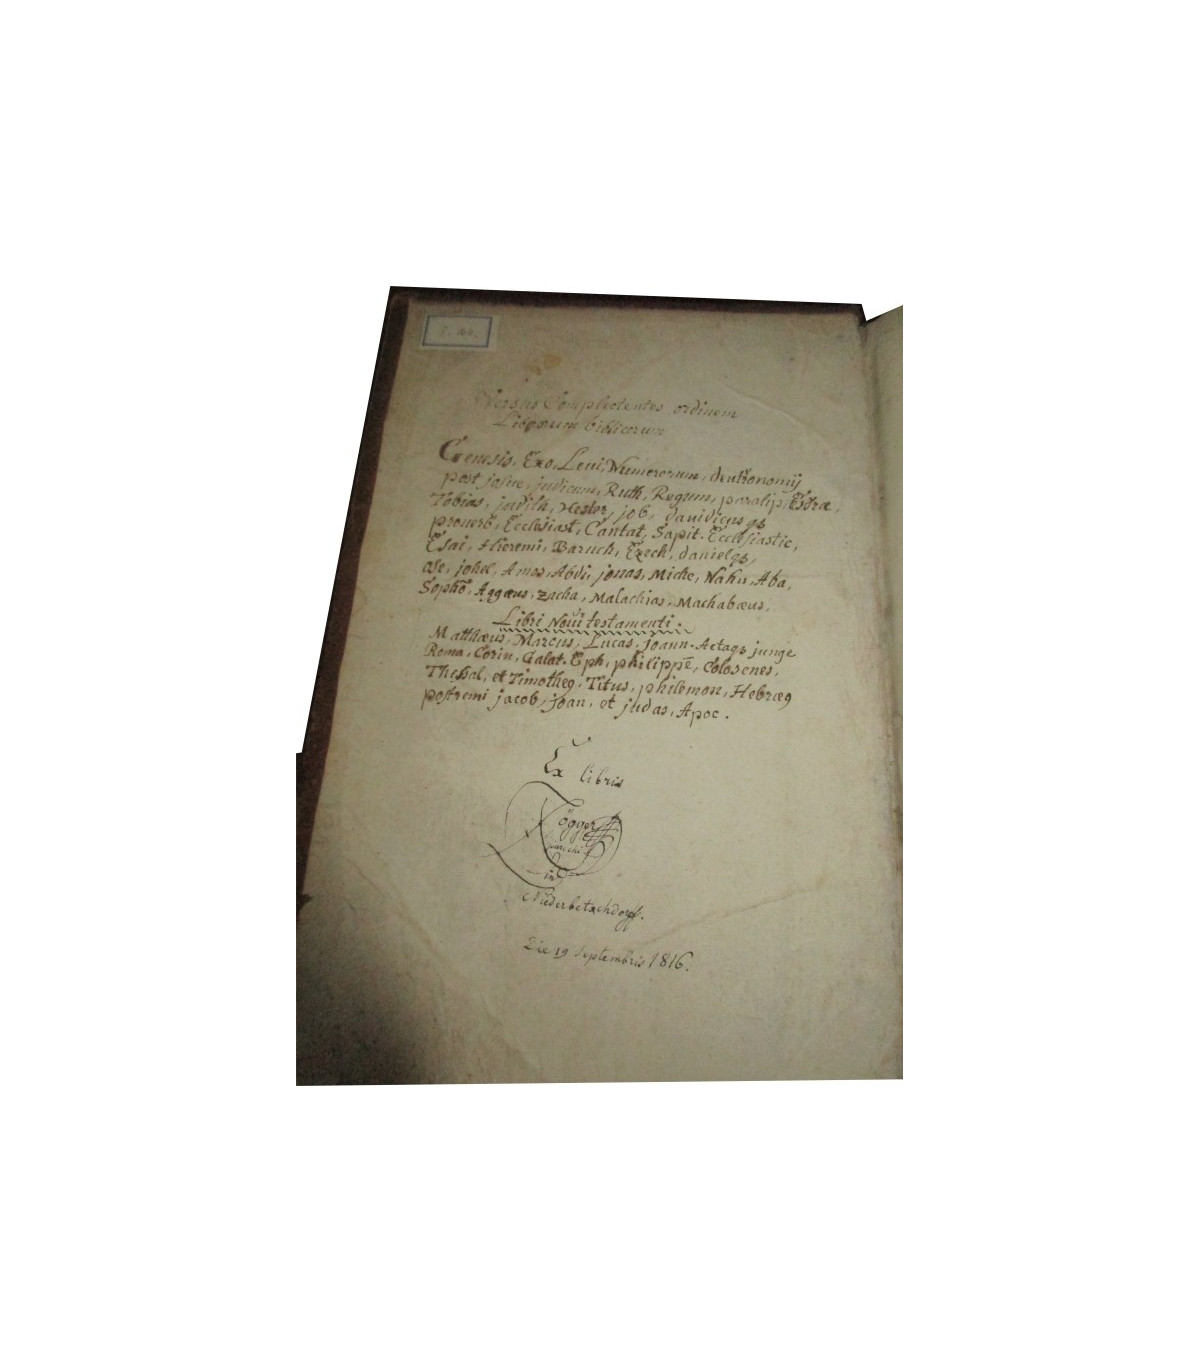 Versus Complectentes ordinem
Librorum biblicorum
Genesis, Exo, Leui, Numerorum, deutronomij
post josue, judicum, Ruth, Regum, paralip, Esdræ,
Tobias, judith, Hester, job, dauidicusqs
prouerb, Ecclesiast, Cantat, Sapit. Ecclesiastic,
Esai, Hieremi, Baruch, Ezech, danielqs,
Ose, johel, Amos, Abdi, jonas, Miche, Nahu, Aba,
Sopho, Aggæus, Zacha, Malachias, Machabæus,
Libri Novi testamenti.
Matthæus, Marcus, Lucas, Joann. Actaqs junge
Roma, Corin, Galat. Eph, philippe, Colosenes,
Thessal, et Timotheq. Titus, philemon, Hebræq
postremi jacob, joan, et judas, Apoc.
Ex libris
Zögger
parochi
in
Niederbetschdorff.
Die 19 Septembris 1816.